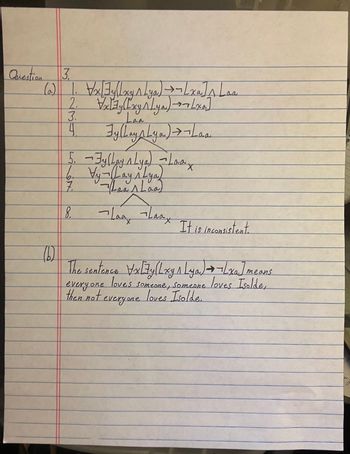 Question 3.
(a) 1. ∀x[∃y(Lxy∧Lya)→¬Lxa]∧Laa
2. ∀x[∃y(Lxy∧Lya)→¬Lxa]
3. Laa
4. ∃y(Lay∧Lya)→¬Laa
5. ¬∃y(Lay∧Lya) ¬Laa x
6. ∀y¬(Lay∧Lya)
7. ¬(Laa∧Laa)
8. ¬Laa x ¬Laa x
It is inconsistent.
(b)
The sentence ∀x[∃y(Lxy∧Lya)→¬Lxa] means
everyone loves someone, someone loves Isolde,
then not everyone loves Isolde.